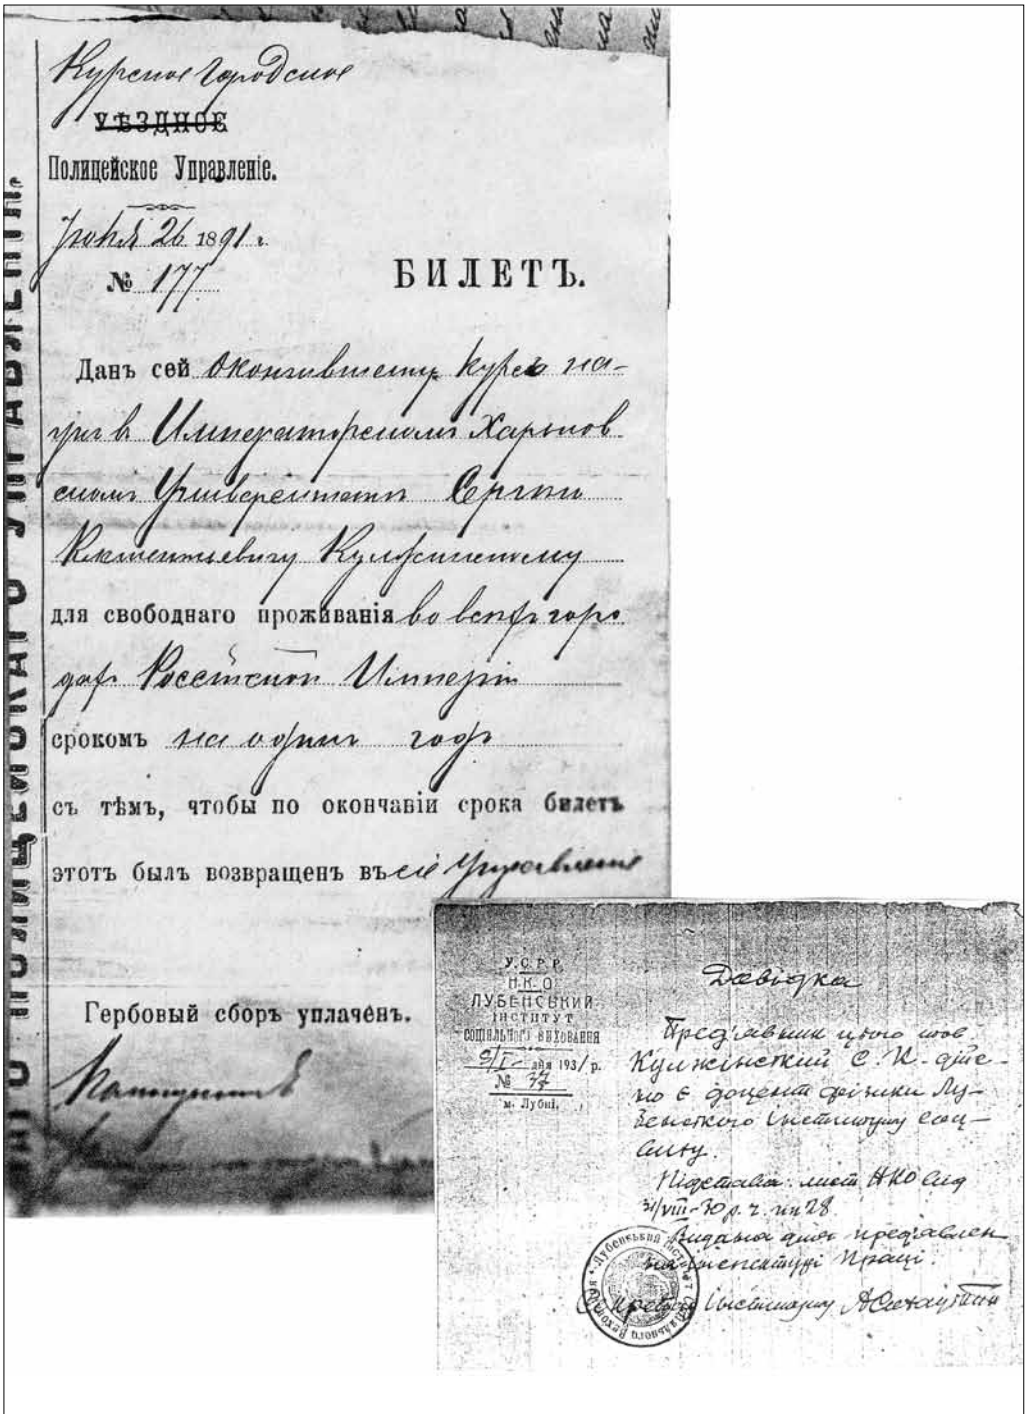 Курское Городское
УѢЗДНОЕ
Полицейское Управленіе.
Іюня 26 1891 г.
№ 177
БИЛЕТЪ.
Данъ сей окончившему курсъ на-
укъ въ Императорскомъ Харьков
скомъ Университетѣ Сергѣю
Кулжинскому
для свободнаго проживанія во всѣхъ горо
дахъ Россійской Имперіи
срокомъ на одинъ годъ
съ тѣмъ, чтобы по окончаніи срока билетъ
этотъ былъ возвращенъ въ сіе Управленіе
Гербовый сборъ уплаченъ.
ПОЛИЦЕЙСКАГО УПРАВЛЕНІЯ.
У.С.Р.Р.
Н.К.О
ЛУБЕНСЬКИЙ
ІНСТИТУТ
СОЦІЯЛЬНОГО ВИХОВАННЯ
дня 1931 р.
№ 37
м. Лубні.
Довідка
Пред'явник цього тов.
Кулжінський С. К. дійс-
но є доцент фізики Лу-
бенського Інституту Соц-
виху.
Підстава: лист НКО від
31/VIII-30 р. ч. 28.
Видана для пред'явлен
ня інспектурі Праці.
Інституту
Лубенський Інститут Соціяльного Виховання